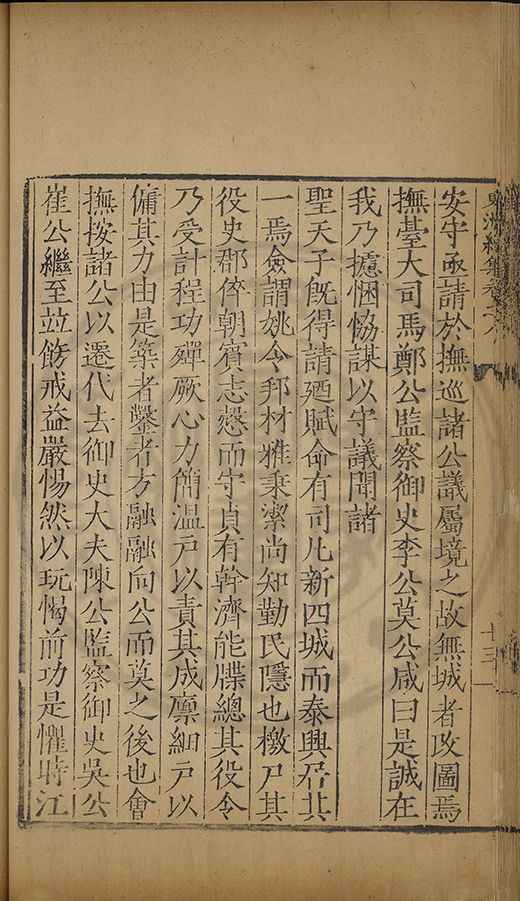 安守亟請於撫巡諸公議屬境之故無城者攻圖焉
撫臺大司馬鄭公監察御史李公莫公咸曰是誠在
我乃攄悃恊謀以守議聞諸
聖天子旣得請廼賦命有司凡新四城而泰興居其
一焉僉謂姚令邦材雅秉潔尚知勤民隱也檄尸其
役史郡倅朝賓志慤而守貞有幹濟能牒總其役令
乃受計程功殫厥心力簡溫戸以責其成廪細戸以
傭其力由是築者鑿者方融融向公而莫之後也會
撫按諸公以遷代去御史大夫陳公監察御史吳公
崔公繼至竝飭戒益嚴惕然以玩愒前功是懼時江